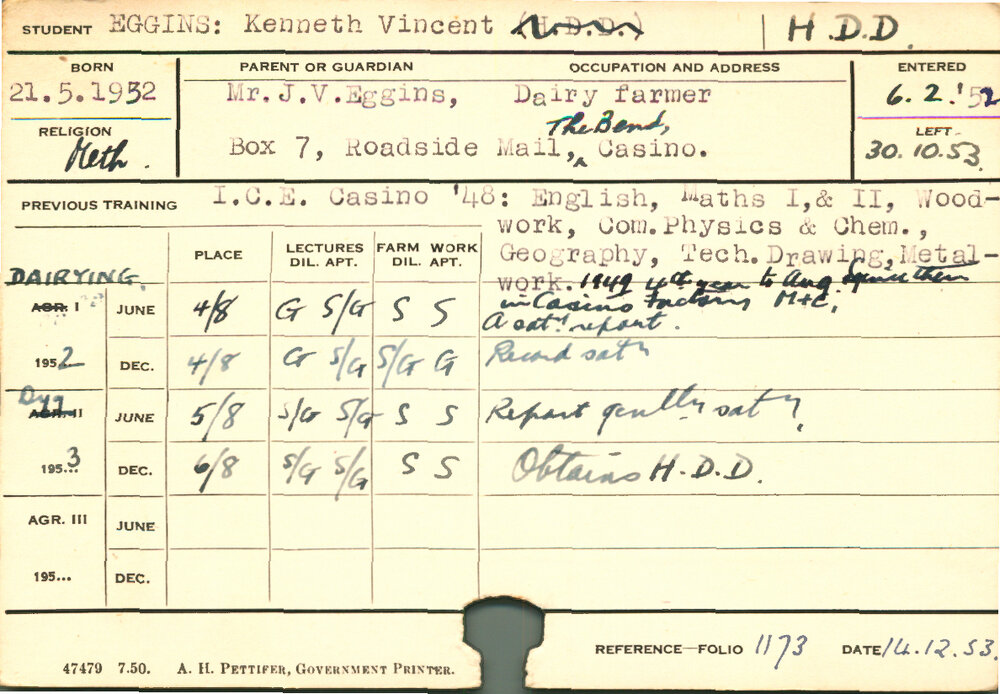 STUDENT EGGINS: Kenneth Vincent (H.D.D.) H.D.D.
BORN PARENT OR GUARDIAN OCCUPATION AND ADDRESS ENTERED
21.5.1932 Mr.J.V.Eggins, Dairy farmer 6.2.'52
RELIGION The Bend, LEFT
Meth. Box 7, Roadside Mail, Casino. 30.10.53
PREVIOUS TRAINING I.C.E. Casino '48: English, Maths I,& II, Wood-
work, Com.Physics & Chem.,
PLACE LECTURES FARM WORK Geography, Tech. Drawing,Metal-
DIL. APT. DIL. APT.
DAIRYING work. 1949 4th year to Aug. Since then
AGR. I JUNE 4/8 G S/G S S in Casino Factory M+C.
A sat. report.
1952 DEC. 4/8 G S/G S/G G Record saty
Dyg
AGR. II JUNE 5/8 S/G S/G S S Report genlly saty
1953 DEC. 6/8 S/G S/G S S Obtains H.D.D.
AGR. III JUNE
195... DEC.
REFERENCE—FOLIO 1173 DATE 14.12.53.
47479 7.50. A. H. PETTIFER, GOVERNMENT PRINTER.